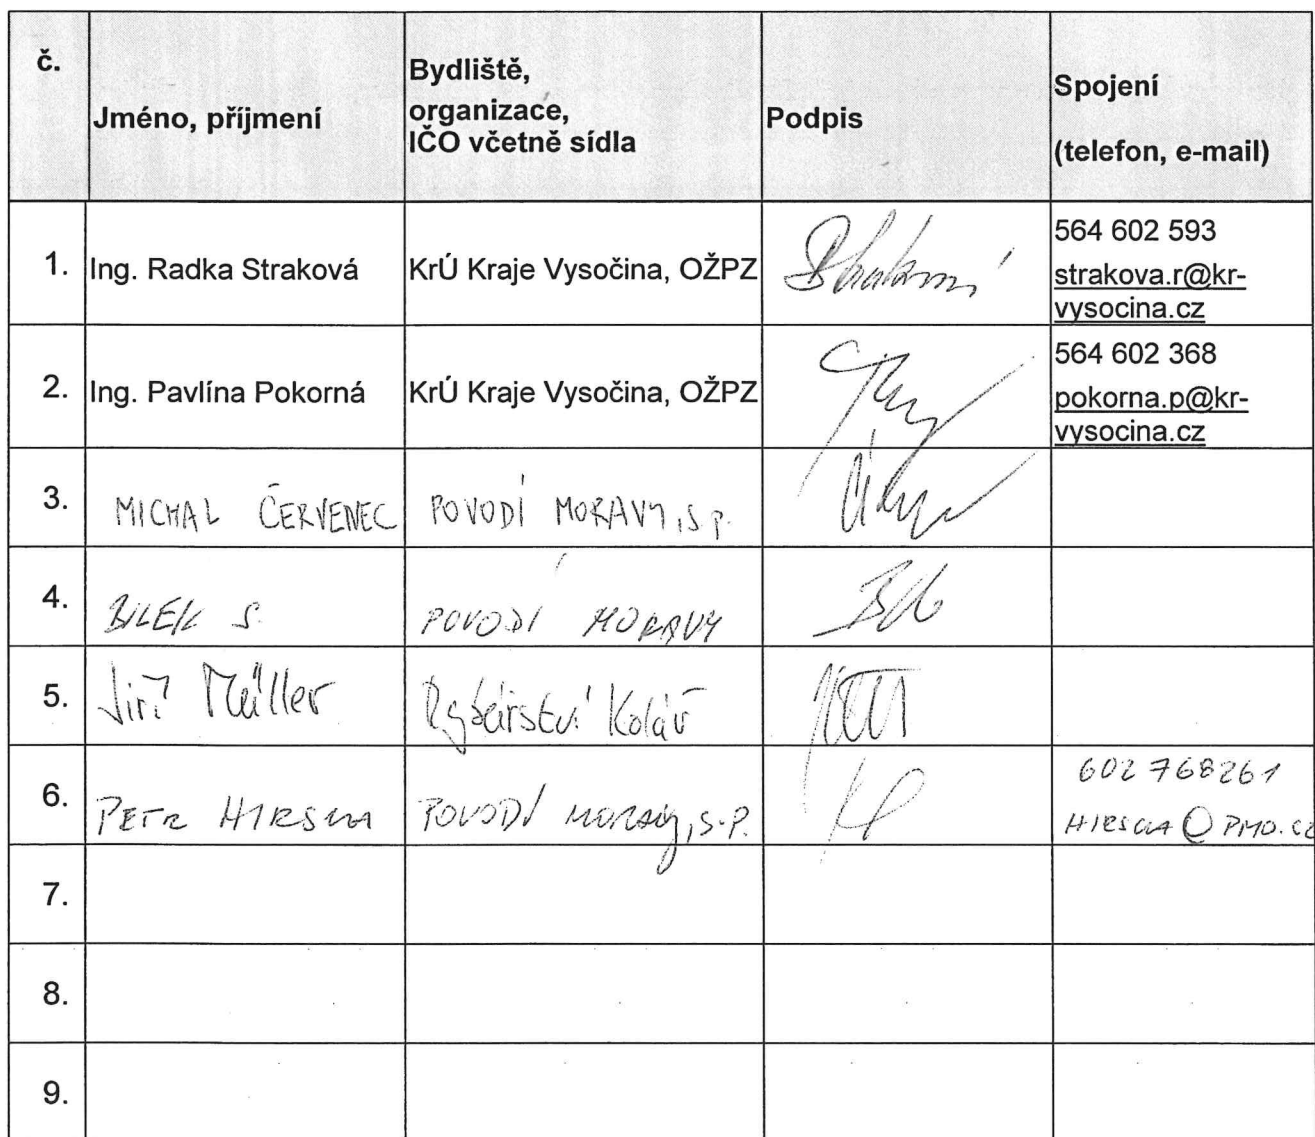 č.
Jméno, příjmení
Bydliště,
organizace,
IČO včetně sídla
Podpis
Spojení
(telefon, e-mail)
1.
Ing. Radka Straková
KrÚ Kraje Vysočina, OŽPZ
564 602 593
strakova.r@kr-
vysocina.cz
2.
Ing. Pavlína Pokorná
KrÚ Kraje Vysočina, OŽPZ
564 602 368
pokorna.p@kr-
vysocina.cz
3.
MICHAL ČERVENEC
POVODÍ MORAVY, s.p.
4.
BÍLEK S.
POVODÍ MORAVY
5.
Jiří Müller
Rybářství Kolář
6.
PETR
POVODÍ MORAVY, S.P.
602 768 261
7.
8.
9.